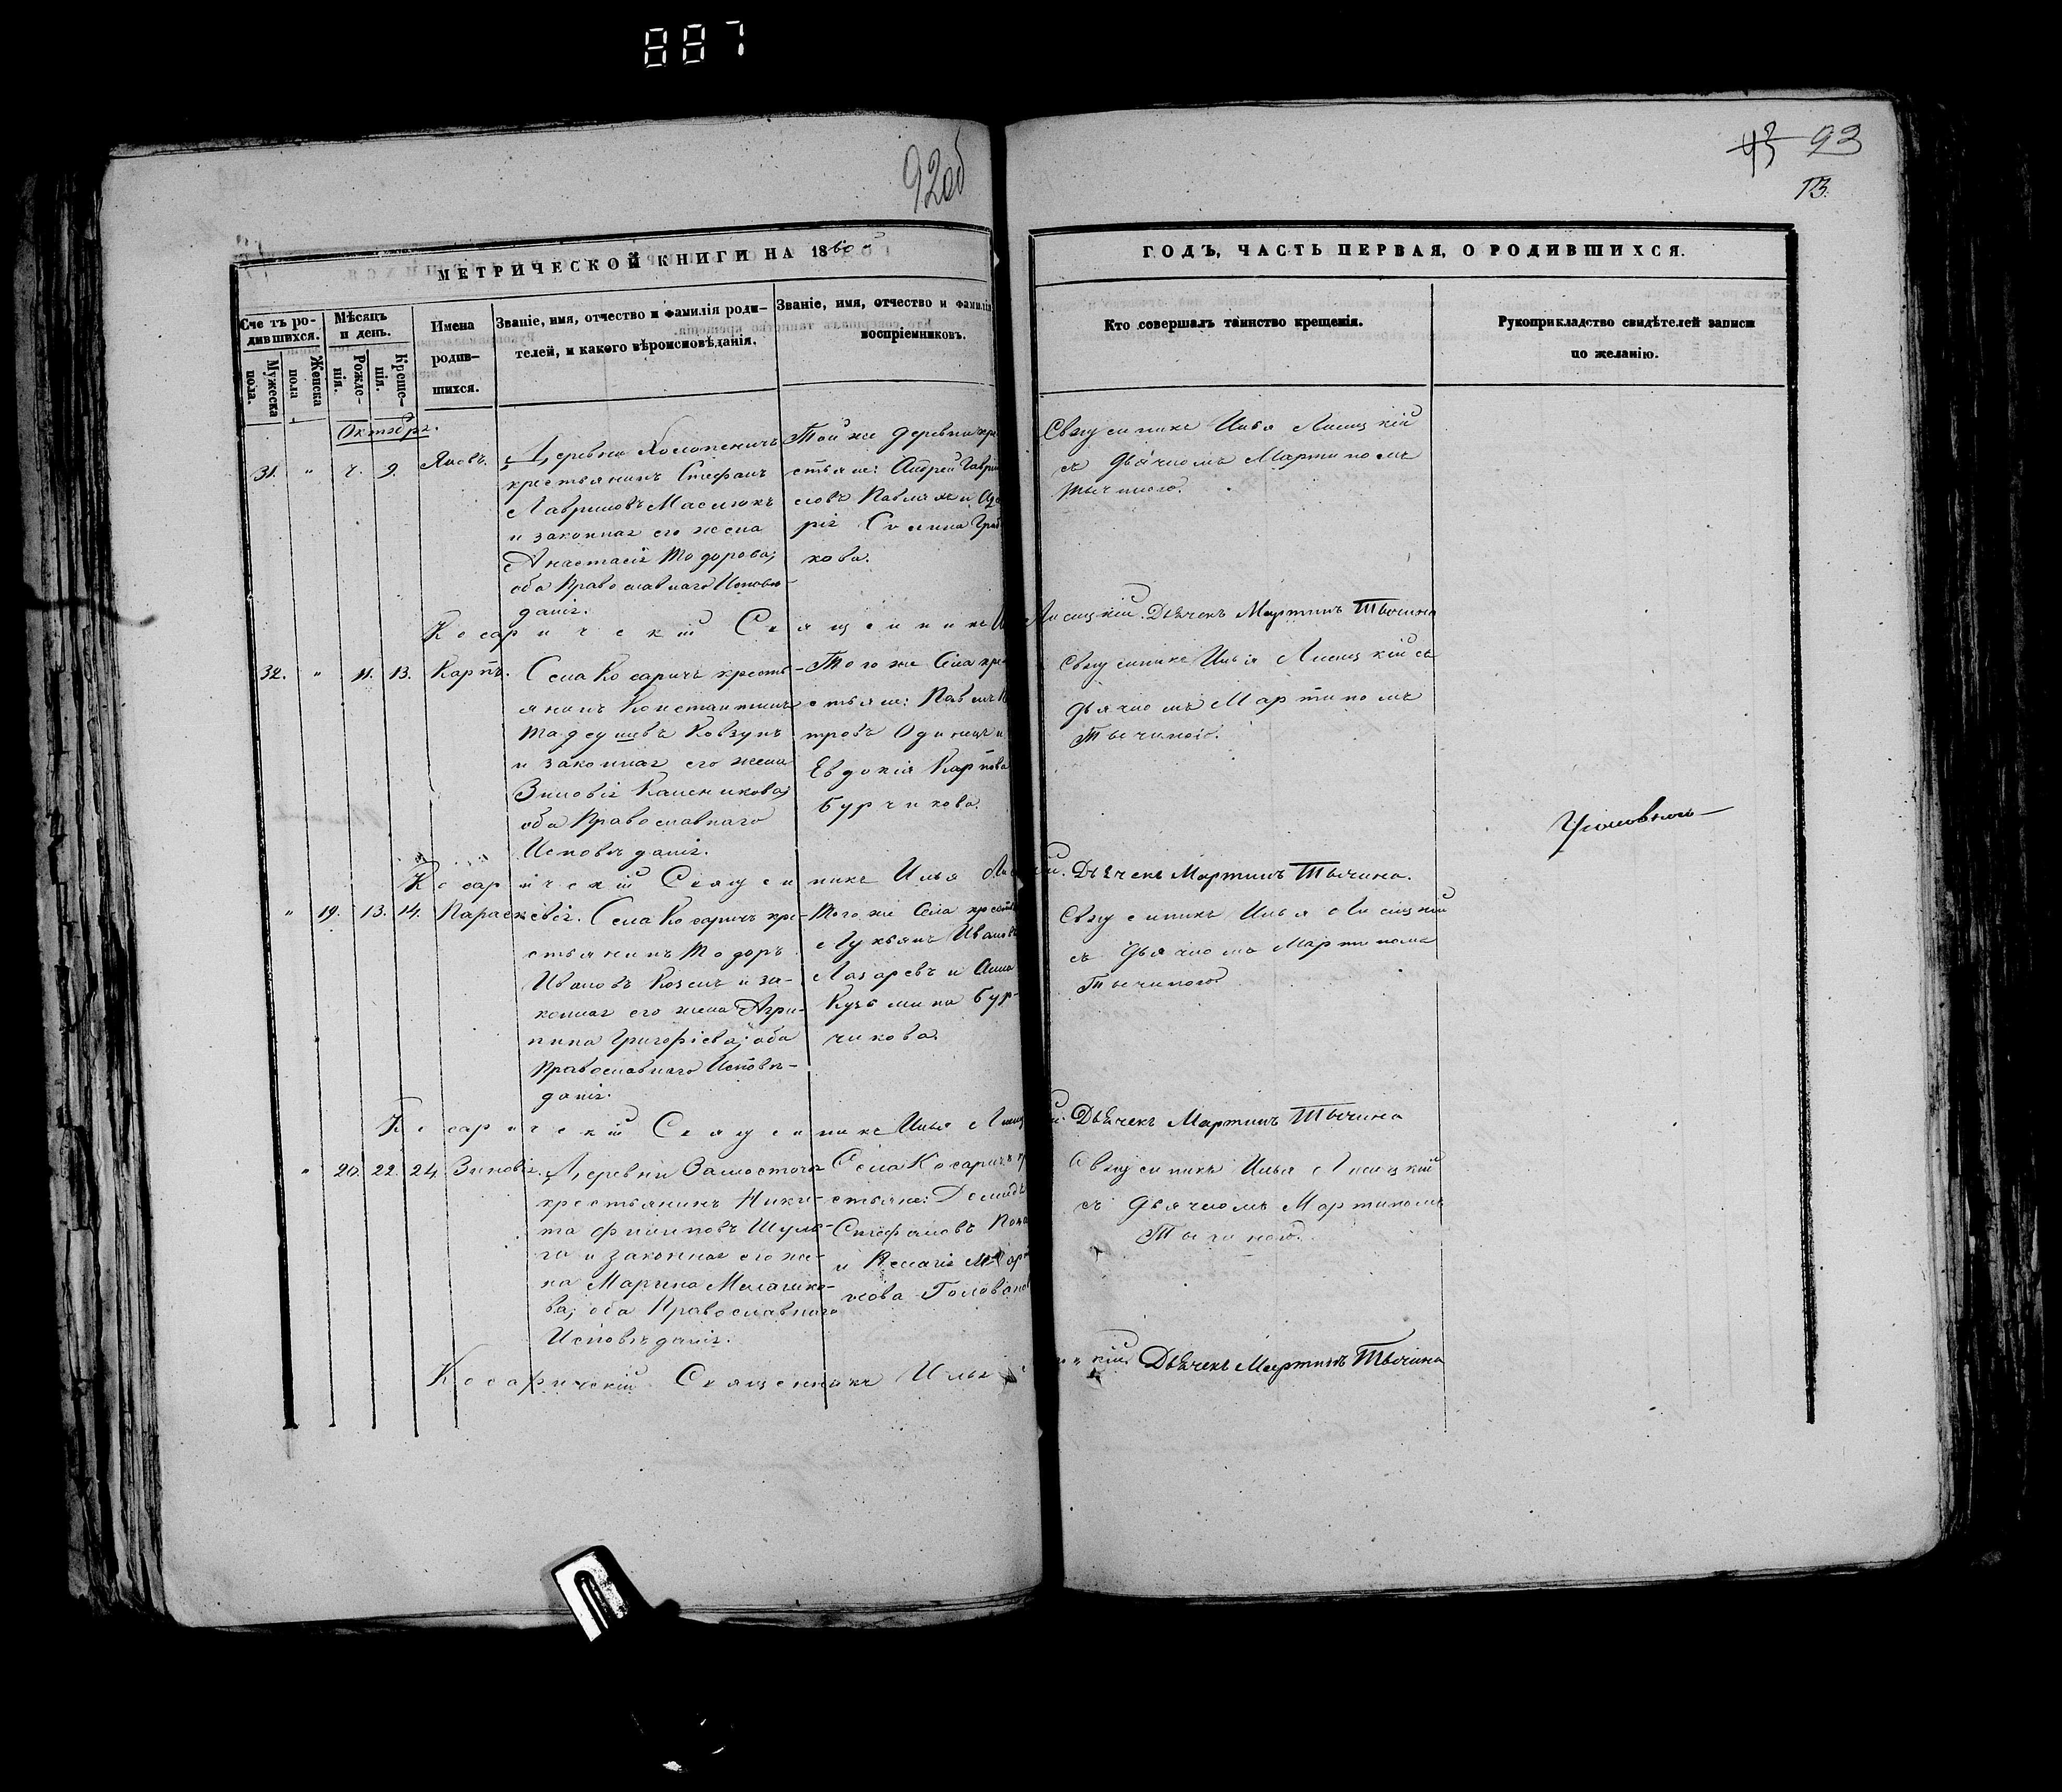 887
92 об
93
13.
МЕТРИЧЕСКОЙ КНИГИ НА 1860 й
ГОДЪ, ЧАСТЬ ПЕРВАЯ, О РОДИВШИХСЯ.
Сче тъ ро-
дившихся.
Мужеска
пола.
Женска
пола
Мѣсяцъ
и день.
Рожде-
нія.
Креще-
нія.
Имена
родив-
шихся.
Званіе, имя, отчество и фамилія роди-
телей, и какого вѣроисповѣданія.
Званіе, имя, отчество и фамилія
воспріемниковъ.
Кто совершалъ таинство крещенія.
Рукоприкладство свидѣтелей записи
по желанію.
Октябрь.
31. " 9. Яковъ.
Деревни
крестьянинъ Стефанъ
Лавриновъ Маслюкъ
и законная его жена
Анастасія Тодорова;
оба Православнаго Исповѣ-
данія.
Той же деревни кре
стьяне: Андрей Гаврі
ловъ и
кова.
Священникъ Илья Лисицкій
съ Дьячкомъ Мартиномъ
Тычиною.
Косарическій Священникъ И Лисицкій. Дьячекъ Мартинъ Тычина
32. " 11. 13. Карпъ.
Села Косаричъ кресть-
янинъ Константинъ
Тадеушевъ Ковзунъ
и законная его жена
Зиновія
оба Православнаго
Исповѣданія.
Того же Села кре
стьяне: Павелъ
тровъ и
Евдокія Карпова
Бурчикова.
Священникъ Илья Лисицкій съ
Дьячкомъ Мартиномъ
Тычиною.
Косарическій Священникъ Илья Ли й. Дьячекъ Мартинъ Тычина.
" 19. 13. 14. Параскевія.
Села Косаричъ кре-
стьянинъ Тодоръ
Ивановъ Козелъ и за-
конная его жена Агри-
пина Григорієва; оба
Православнаго Исповѣ-
данія.
Того же Села кресть
Лукьянъ Иванов
Лазаревъ и Анна
Кузьмина Бур-
чикова.
Священникъ Илья Лисицкій
съ Дьячкомъ Мартиномъ
Тычиною.
Косарическій Священникъ Илья Лисиц й. Дьячекъ Мартинъ Тычина
" 20. 22. 24. Зиновія.
Деревни Замосточья
крестьянинъ Ники-
та Филиповъ Шуль-
га и законная его же-
на Марина
ва; оба Православнаго
Исповѣданія.
Села Косаричъ кр
стьяне: Демидъ
Стефановъ
и Пелагія
нова Голован
Священникъ Илья Лисицкій
съ Дьячкомъ Мартиномъ
Тычиною.
Косарическій Священникъ Илья цкій. Дьячекъ Мартинъ Тычина